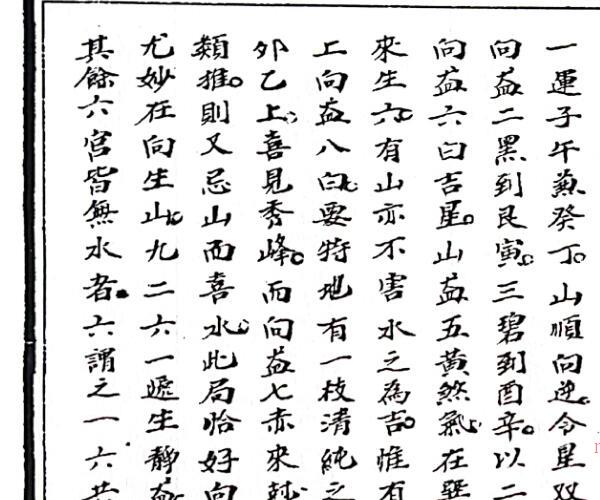 一運子午兼癸丁。山順向逆。令星双
向盘二黑到艮寅。三碧到酉辛。以二
向盘六白吉星。山盘五黄然氣。在巽
來生六。有山亦不害水之為吉。惟有
上向盘八白。要特地有一枝清純之
夘乙上。喜見秀峰。而向盘七赤來尅
類推。則又忌山而喜水。此局恰好向
尤妙在向生山。九二六一遞生静盘
其餘六宮皆無水者。六謂之一六共